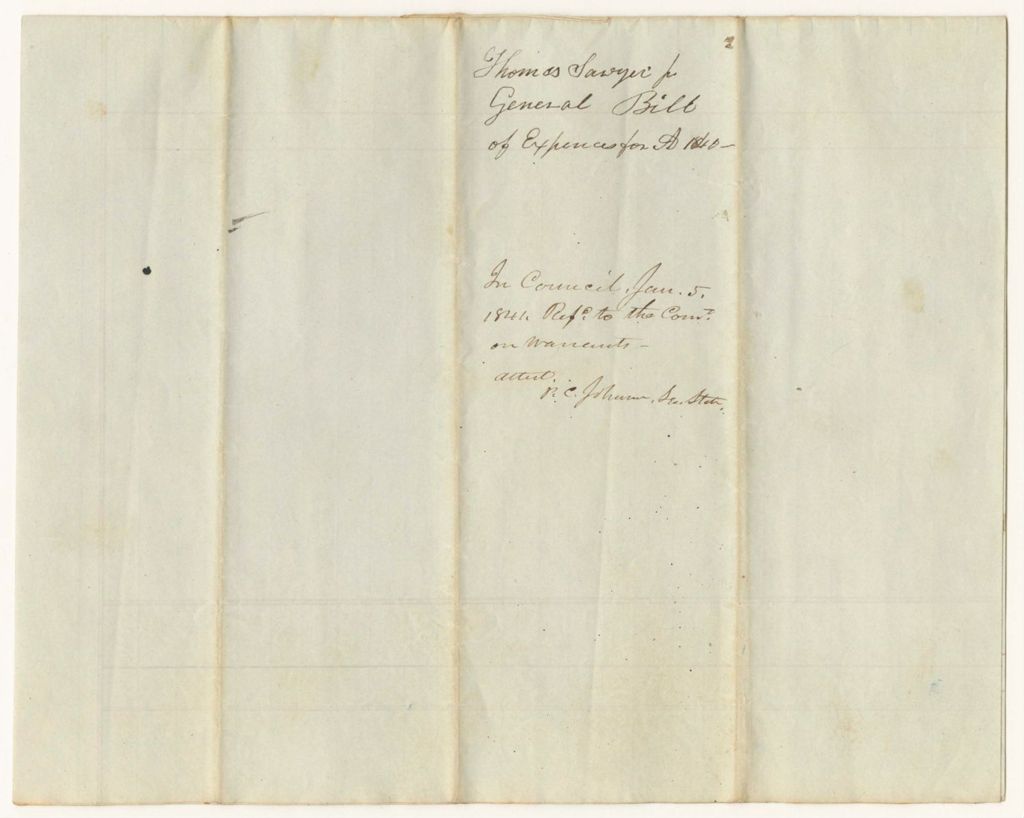 2
Thomas Sawyer jr
General Bill
of Expences for A 1840 –
In Council, Jan. 5,
1841. Refd. to the Comee.
on Warrants –
attest.
P. C. Johnson, Sec. State,